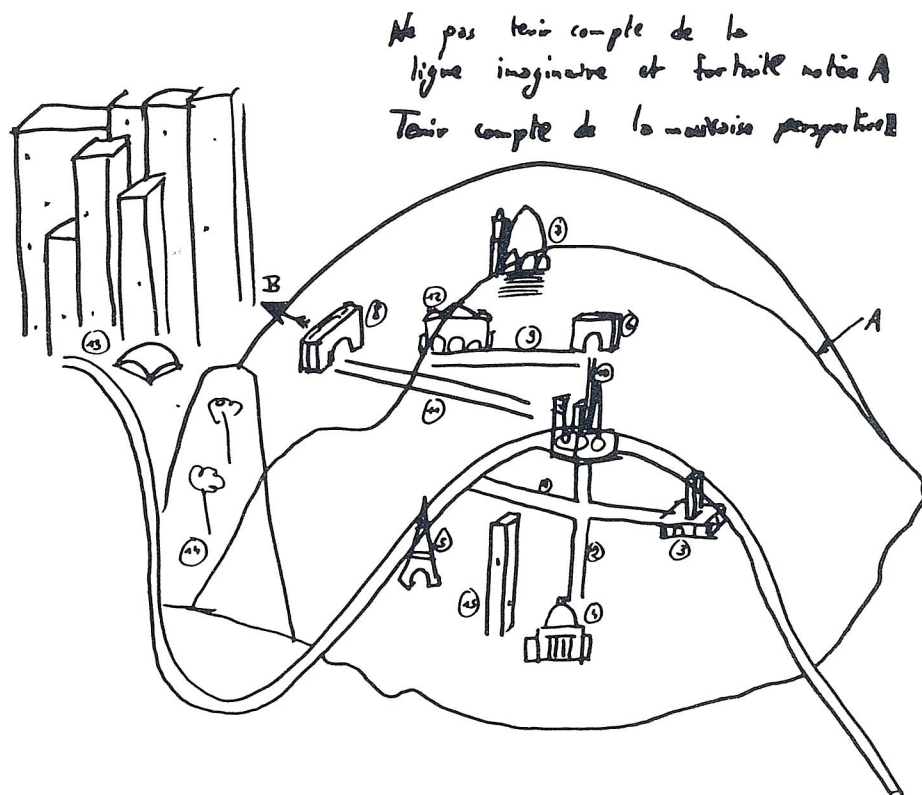 Ne pas tenir compte de la
ligne imaginaire et fortuite notée A
Tenir compte de la mauvaise perspective
B
A
13
8
12
9
11
10
1
5
3
2
14
15
4